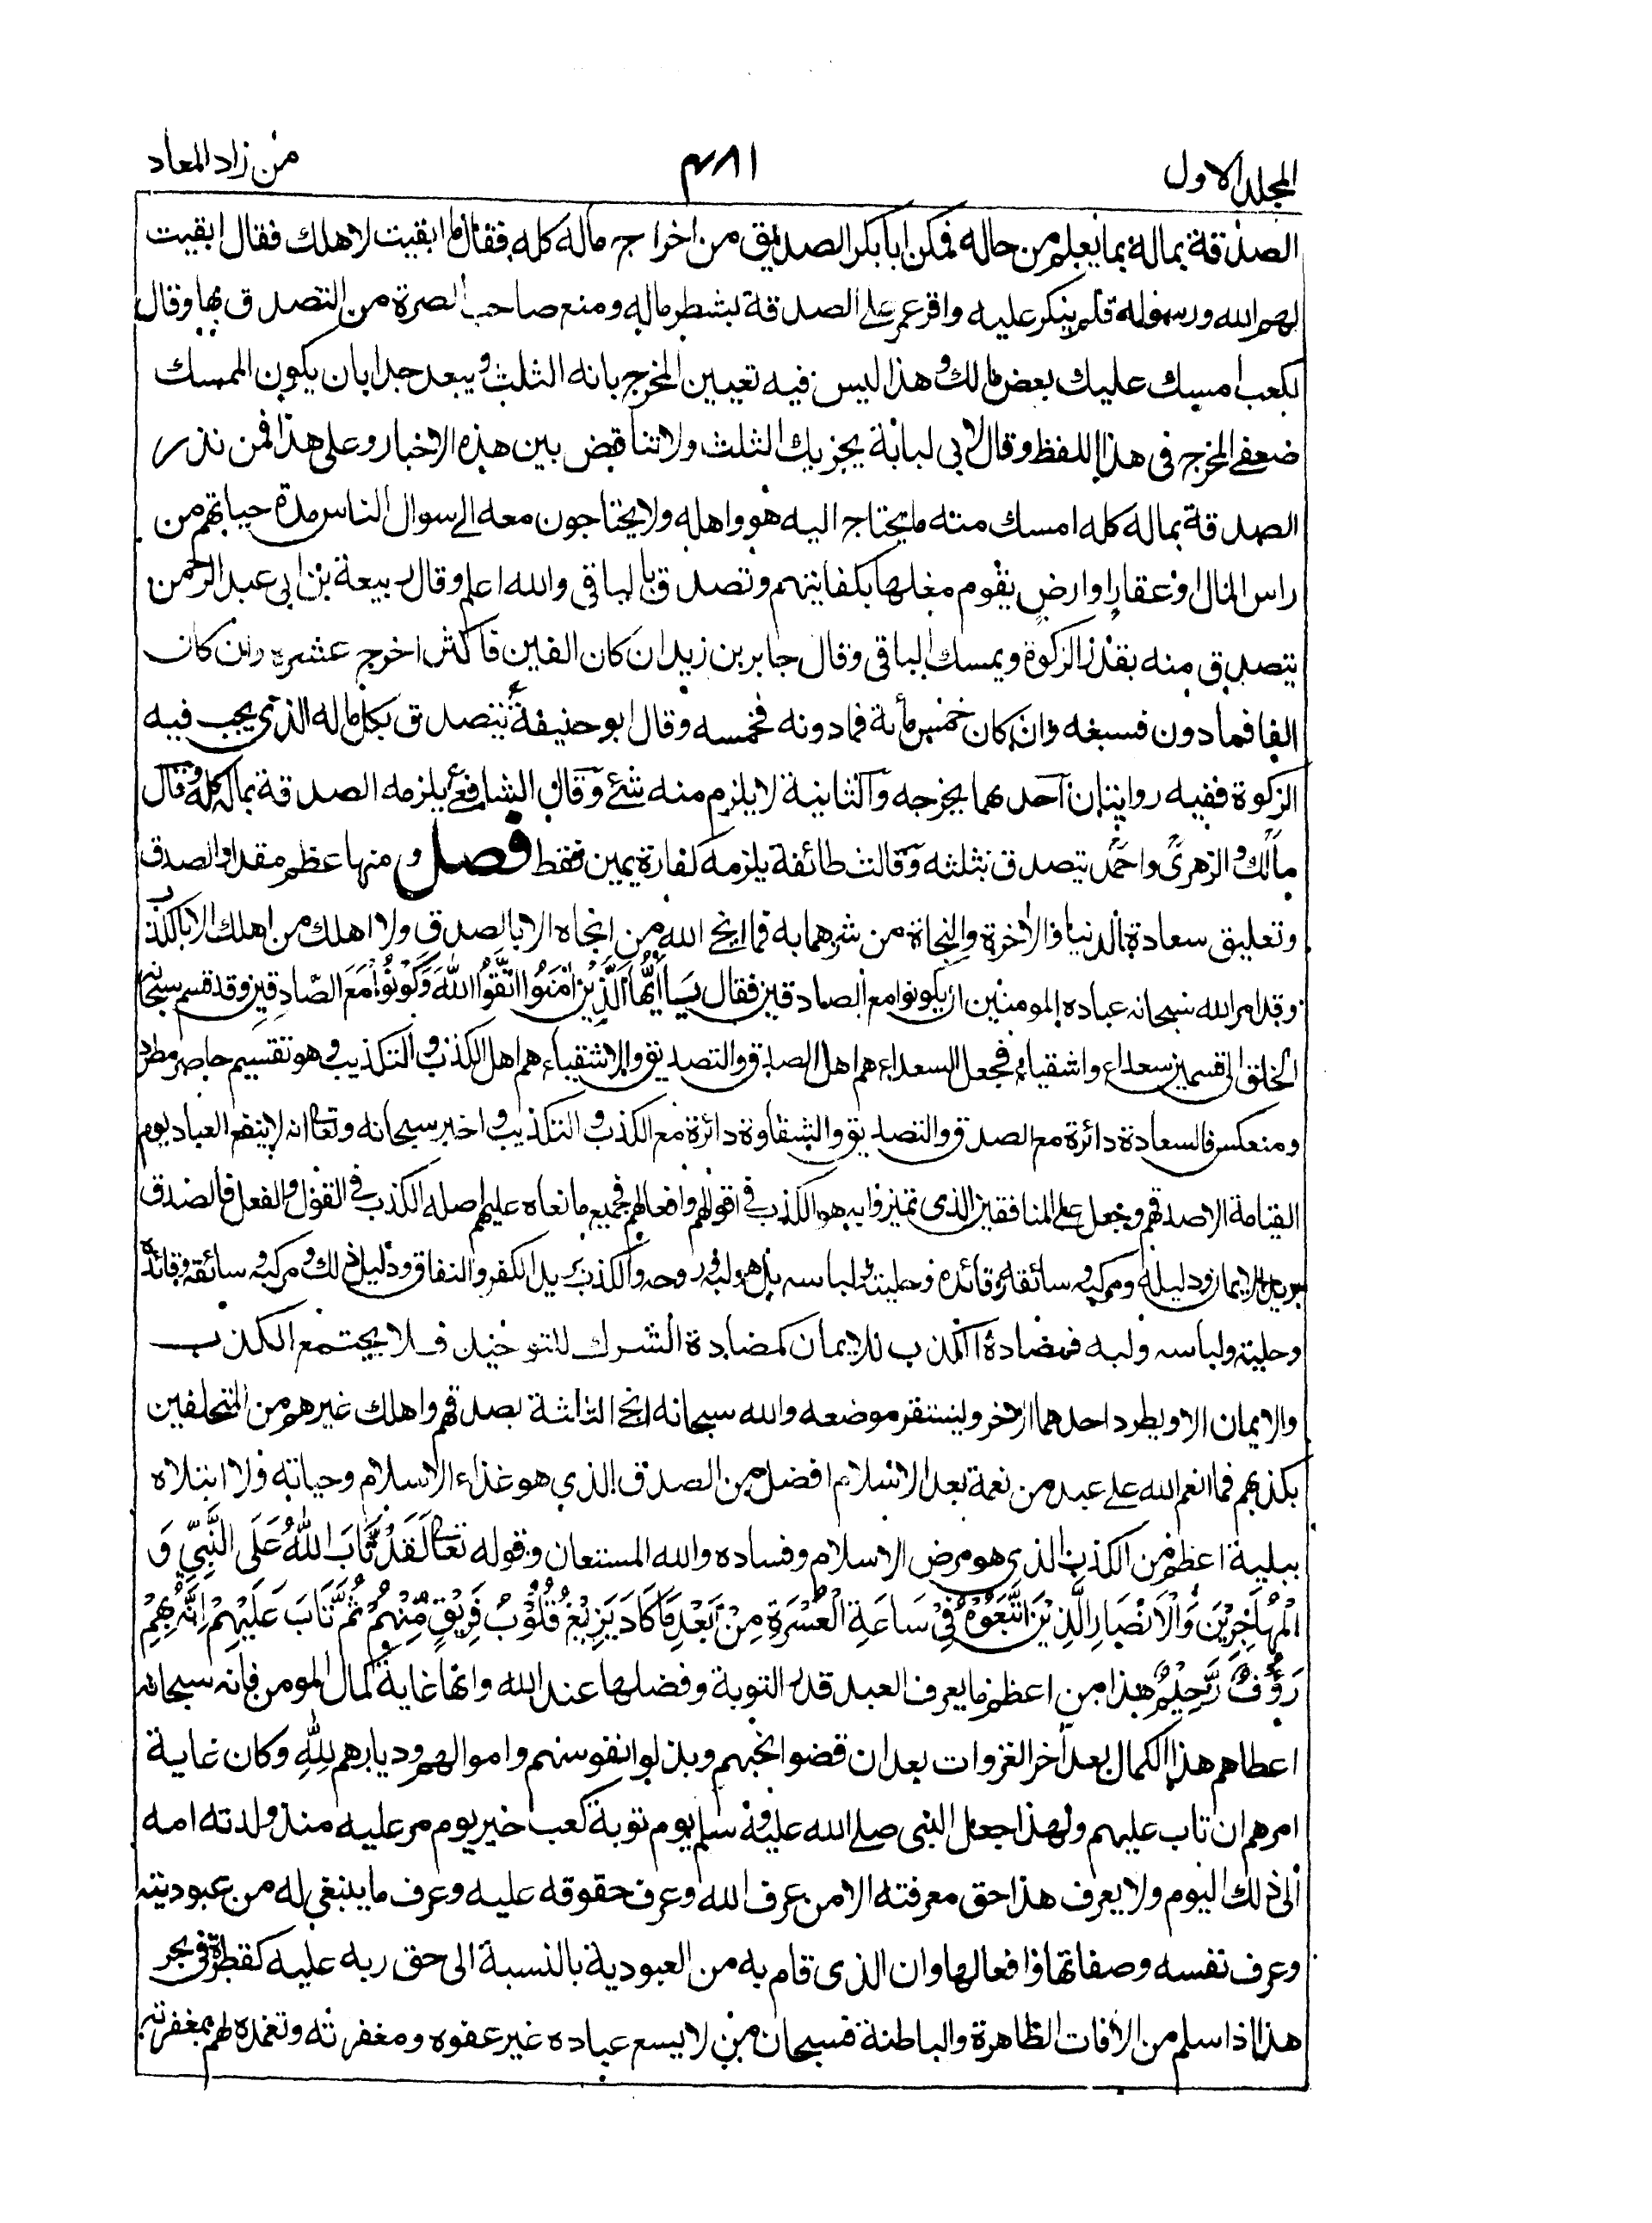 المجلد الاول
٤٨١
من زاد المعاد
الصدقة بماله بما يعلم من حاله فمكن ابا بكر الصديق من اخراج ماله كله فقال ما ابقيت لاهلك فقال ابقيت
لهم الله ورسوله فلم ينكر عليه واقر عمر على الصدقة بشطر ماله ومنع صاحب الصرة من التصدق بها وقال
لكعب امسك عليك بعض مالك وهذا ليس فيه تعيين المخرج بانه الثلث ويبعد جدا بان يكون الممسك
ضعفى المخرج فى هذا اللفظ وقال لابى لبابة يجزيك الثلث ولا تناقض بين هذه الاخبار وعلى هذا فمن نذر
الصدقة بماله كله امسك منه ما يحتاج اليه هو واهله ولا يحتاجون معه الى سوال الناس مدة حياتهم من
راس المال او عقار او ارض يقوم مغلها بكفايتهم وتصدق بالباقى والله اعلم وقال ربيعة بن ابى عبد الرحمن
يتصدق منه بقدر الزكوة ويمسك الباقى وقال جابر بن زيد ان كان الفين فاكثر اخرج عشره وان كان
الفا فما دون فسبعه وان كان خمس مأئة فما دونه فخمسه وقال ابو حنيفة يتصدق بكل ماله الذى يجب فيه
الزكوة ففيه روايتان احدهما يخرجه والثانية لا يلزم منه شئ وقال الشافعى يلزمه الصدقة بماله كله وقال
مالك والزهرى واحمد يتصدق بثلثه وقالت طائفة يلزمه كفارة يمين فقط فصل ومنها عظم مقدار الصدق
وتعليق سعادة الدنيا والاخرة والنجاة من شرهما به فما انجى الله من انجاه الا بالصدق ولا اهلك من اهلك الا بالكذب
وقد امر الله سبحانه عباده المومنين ان يكونوا مع الصادقين فقال يَا أَيُّهَا الَّذِيْنَ اٰمَنُوا اتَّقُوا اللّٰهَ وَكُوْنُوْا مَعَ الصّٰادِقِيْنَ وقد قسم سبحانه
الخلق الى قسمين سعداء واشقياء فجعل السعداء هم اهل الصدق والتصديق والاشقياء هم اهل الكذب والتكذيب وهو تقسيم حاصر مطرد
ومنعكس فالسعادة دائرة مع الصدق والتصديق والشقاوة دائرة مع الكذب والتكذيب واخبر سبحانه وتعالى انه لا ينفع العباد يوم
القيامة الا صدقهم وجعل علم المنافقين الذى تميزوا به هو الكذب فى اقوالهم وافعالهم فجميع ما نعاه عليهم اصله الكذب فى القول والفعل فالصدق
بريد الايمان ودليله ومركبه وسائقه وقائده وحليته ولباسه بل هو لبه وروحه والكذب بريد الكفر والنفاق ودليل ذلك ومركبه وسائقه وقائده
وحليته ولباسه ولبه فمضادة الكذب للايمان كمضادة الشرك للتوحيد فلا يجتمع الكذب
والايمان الا ويطرد احدهما الاخر ويستقر موضعه والله سبحانه انجى الثلثة بصدقهم واهلك غيرهم من المتخلفين
بكذبهم فما انعم الله على عبد من نعمة بعد الاسلام افضل من الصدق الذى هو غذاء الاسلام وحياته ولا ابتلاه
ببلية اعظم من الكذب الذى هو مرض الاسلام وفساده والله المستعان وقوله تعالى لَقَدْ تَّابَ اللّٰهُ عَلَى النَّبِيِّ وَ
الْمُهَاجِرِيْنَ وَالْاَنْصَارِ الَّذِيْنَ اتَّبَعُوْهُ فِيْ سَاعَةِ الْعُسْرَةِ مِنْ بَعْدِ مَا كَادَ يَزِيْغُ قُلُوْبُ فَرِيْقٍ مِّنْهُمْ ثُمَّ تَابَ عَلَيْهِمْ اِنَّهٗ بِهِمْ
رَؤُفٌ رَّحِيْمٌ هذا من اعظم ما يعرف العبد قدر التوبة وفضلها عند الله وانها غاية كمال المومن فانه سبحانه
اعطاهم هذا الكمال بعد آخر الغزوات بعد ان قضوا نحبهم وبذلوا نفوسهم واموالهم وديارهم لِلّٰهِ وكان غاية
امرهم ان تاب عليهم ولهذا جعل النبى صلى الله عليه وسلم يوم توبة كعب خير يوم مر عليه منذ ولدته امه
الى ذلك اليوم ولا يعرف هذا حق معرفته الا من عرف الله وعرف حقوقه عليه وعرف ما ينبغى له من عبوديته
وعرف نفسه وصفاتها وافعالها وان الذى قام به من العبودية بالنسبة الى حق ربه عليه كقطرة فى بحر
هذا اذا سلم من الآفات الظاهرة والباطنة فسبحان من لا يسع عباده غير عفوه ومغفرته وتغمده لهم بمغفرته